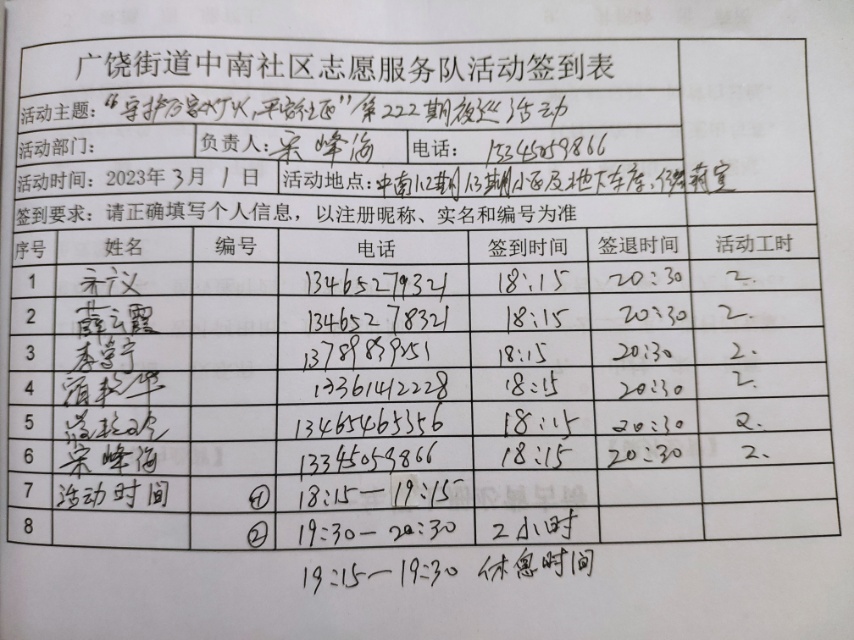 广饶街道中南社区志愿服务队活动签到表
活动主题：“守护万家灯火,平安社区”第222期夜巡活动
活动部门： 负责人：宋峰海 电话： 13345059866
活动时间：2023年3月1日 活动地点：中南1.2期1.3期小区及地下车库、
签到要求：请正确填写个人信息，以注册昵称、实名和编号为准
序号 姓名 编号 电话 签到时间 签退时间 活动工时
1 13465279321 18:15 20:30 2.
2 薛云霞 13465278321 18:15 20:30 2.
3 李学宁 13789839251 18:15 20:30 2.
4 13361412228 18:15 20:30 2.
5 13465465356 18:15 20:30 2.
6 宋峰海 13345059866 18:15 20:30 2.
7 活动时间 ① 18:15—19:15
8 ② 19:30—20:30 2小时
19:15—19:30 休息时间